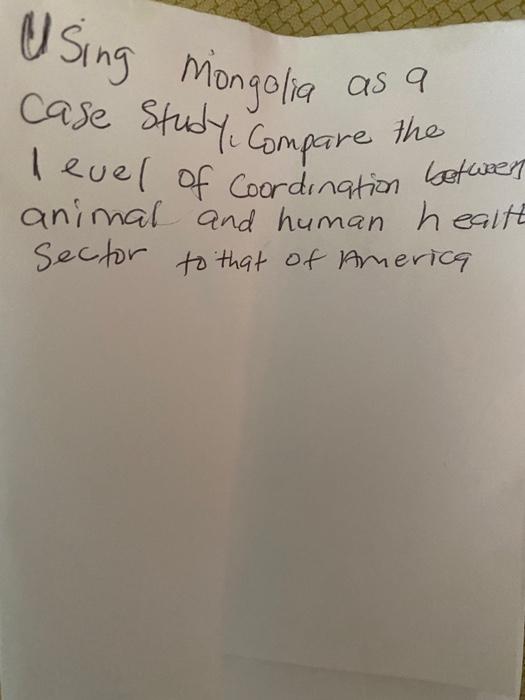 Using Mongolia as a
Case Study. Compare the
level of Coordination between
animal and human health
Sector to that of America